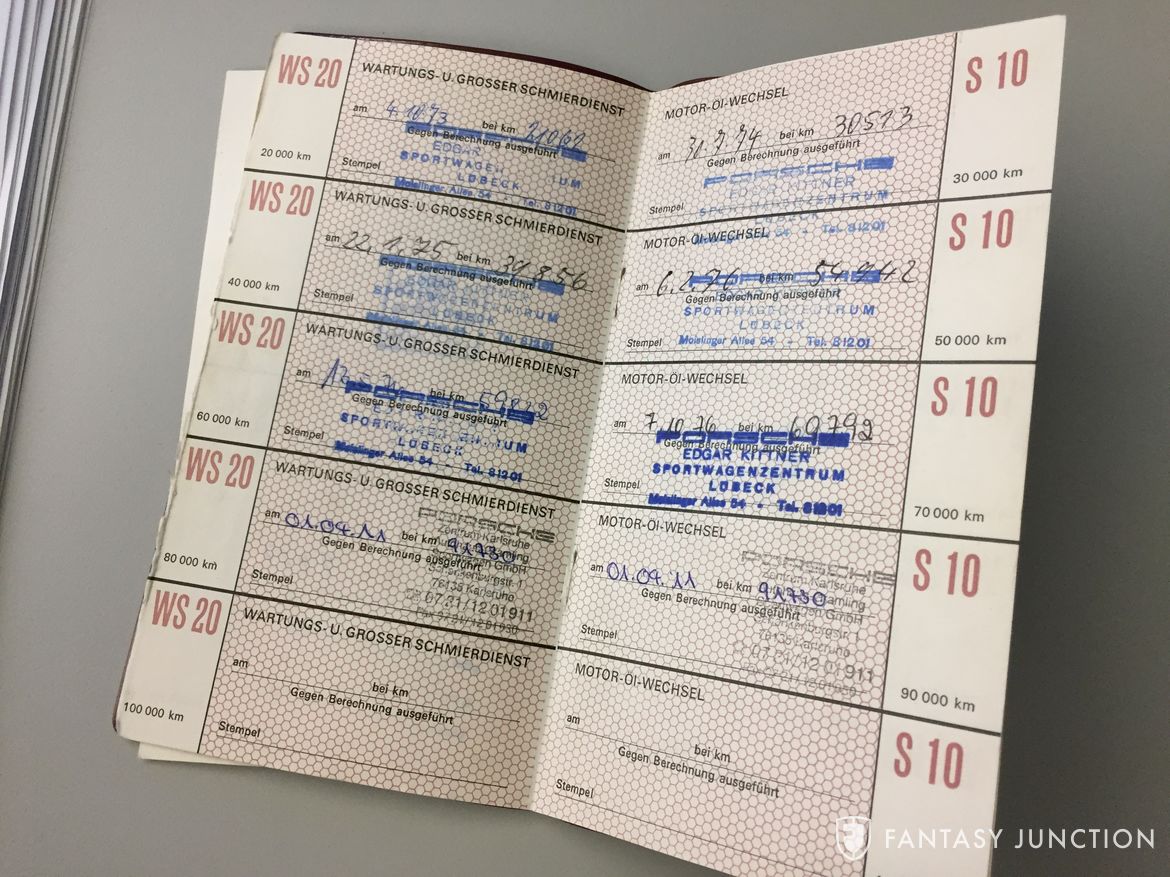 WS 20
WARTUNGS- U. GROSSER SCHMIERDIENST
am 4.10.73 bei km 21062
Gegen Berechnung ausgeführt
EDGAR
SPORTWAGEN UM
LÜBECK
Moislinger Allee 54 - Tel. 81201
Stempel
20 000 km
WS 20
WARTUNGS- U. GROSSER SCHMIERDIENST
am 22.1.75 bei km 39856
Gegen Berechnung ausgeführt
SPORTWAGENZENTRUM
LÜBECK
Moislinger Allee 54 - Tel. 81201
Stempel
40 000 km
WS 20
WARTUNGS- U. GROSSER SCHMIERDIENST
am bei km
Gegen Berechnung ausgeführt
SPORTWAGENZENTRUM
LÜBECK
Moislinger Allee 54 - Tel. 81201
Stempel
60 000 km
WS 20
WARTUNGS- U. GROSSER SCHMIERDIENST
PORSCHE
Zentrum Karlsruhe
am 01.04.11 bei km 91730
Gegen Berechnung ausgeführt
GmbH
76135 Karlsruhe
07 21 / 12 01 911
Stempel
80 000 km
WS 20
WARTUNGS- U. GROSSER SCHMIERDIENST
am
bei km
Gegen Berechnung ausgeführt
Stempel
100 000 km
S 10
MOTOR-ÖI-WECHSEL
am bei km 30513
Gegen Berechnung ausgeführt
PORSCHE
EDGAR KITTNER
SPORTWAGENZENTRUM
LÜBECK
Moislinger Allee 54 - Tel. 81201
Stempel
30 000 km
S 10
MOTOR-ÖI-WECHSEL
am 6.2.76 bei km 54942
Gegen Berechnung ausgeführt
SPORTWAGENZENTRUM
LÜBECK
Moislinger Allee 54 - Tel. 81201
Stempel
50 000 km
S 10
MOTOR-ÖI-WECHSEL
am 7.10.76 bei km 69792
PORSCHE
Gegen Berechnung ausgeführt
EDGAR KITTNER
SPORTWAGENZENTRUM
LÜBECK
Moislinger Allee 54 - Tel. 81201
Stempel
70 000 km
S 10
MOTOR-ÖI-WECHSEL
PORSCHE
Zentrum Karlsruhe
am 01.04.11 bei km 91730
Gegen Berechnung ausgeführt
GmbH
76135 Karlsruhe
07 21 / 12 01 911
Stempel
90 000 km
S 10
MOTOR-ÖI-WECHSEL
am
bei km
Gegen Berechnung ausgeführt
Stempel
FANTASY JUNCTION